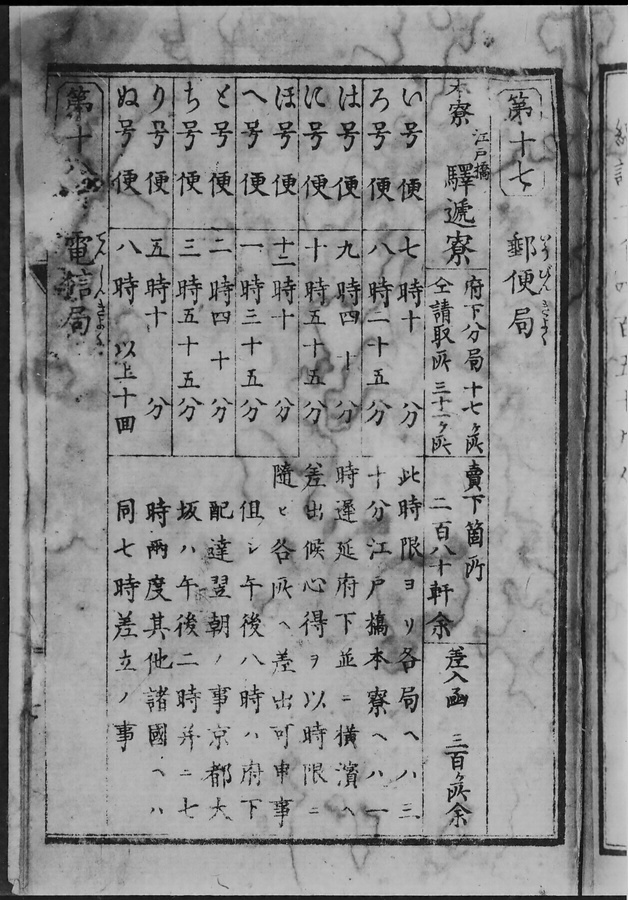 第十七 郵便局
いうびんきよく
本寮 江戸橋 驛遞寮
府下分局 十七ヶ所
仝請取所 三十一ヶ所
賣下箇所
二百八十軒余
差入函 三百ヶ所余
い号便 七時十分
ろ号便 八時二十五分
は号便 九時四十分
に号便 十時五十五分
ほ号便 十二時十分
へ号便 一時三十五分
と号便 二時四十分
ち号便 三時五十五分
り号便 五時十分
ぬ号便 八時 以上十回
此時限ヨリ各局ヘハ三
十分江戸橋本寮ヘハ一
時遲延府下並ニ横濱ヘ
差出候心得ヲ以時限ニ
隨ヒ各所ヘ差出可申事
但シ午後八時ハ府下
配達翌朝ノ事京都大
坂ハ午後二時并ニ七
時兩度其他諸國ヘハ
同七時差立ノ事
第十八 電信局
でんしんきよく